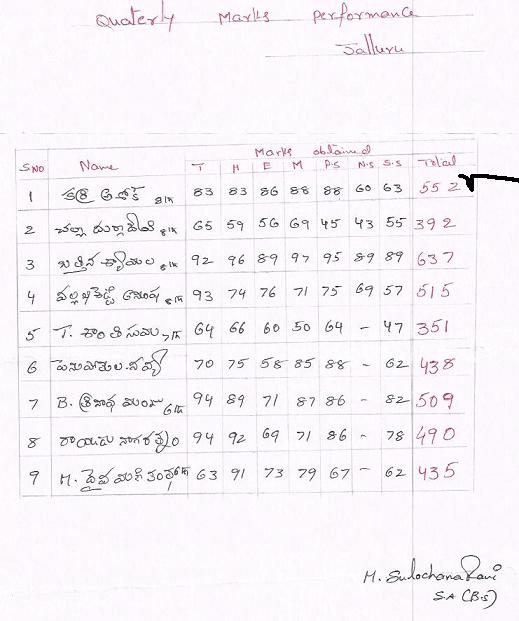 Quaterly Marks performance
Jalluru
Marks obtained
S NO Name T H E M P.S N.S S.S Total
1 కర్రి అశోక్ 8th 83 83 86 88 88 60 63 552
2 చల్లా దుర్గాదేవి 8th 65 59 56 69 45 43 55 392
3 బత్తిన శ్యామల 8th 92 96 89 97 95 89 89 637
4 8th 93 74 76 71 75 69 57 515
5 T. శాంతి సుమ 7th 64 66 60 50 64 - 47 351
6 70 75 58 85 88 - 62 438
7 B. 6th 94 89 71 87 86 - 82 509
8 రాయుడు నాగరత్నం 94 92 69 71 86 - 78 490
9 M. దైవ 63 91 73 79 67 - 62 435
M. Sulochana Rani
S.A (B.S)